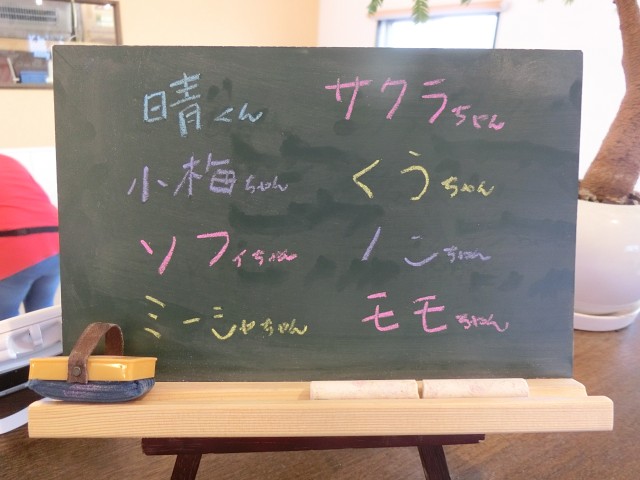 晴くん サクラちゃん
小梅ちゃん くうちゃん
ソフィちゃん ノンちゃん
ミーシャちゃん モモちゃん